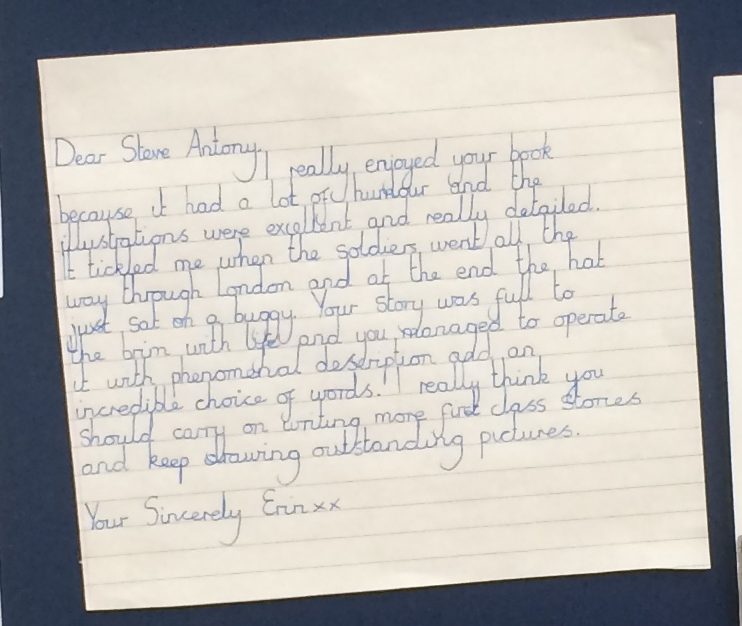 Dear Steve Antony,
I really enjoyed your book
because it had a lot of humour and the
illustrations were excellent and really detailed.
It tickled me when the soldiers went all the
way through London and at the end the hat
just sat on a buggy. Your story was full to
the brim with life and you managed to operate
it with phenomenal description add an
incredible choice of words. I really think you
should carry on writing more first class stories
and keep drawing outstanding pictures.
Your Sincerely Erin xx